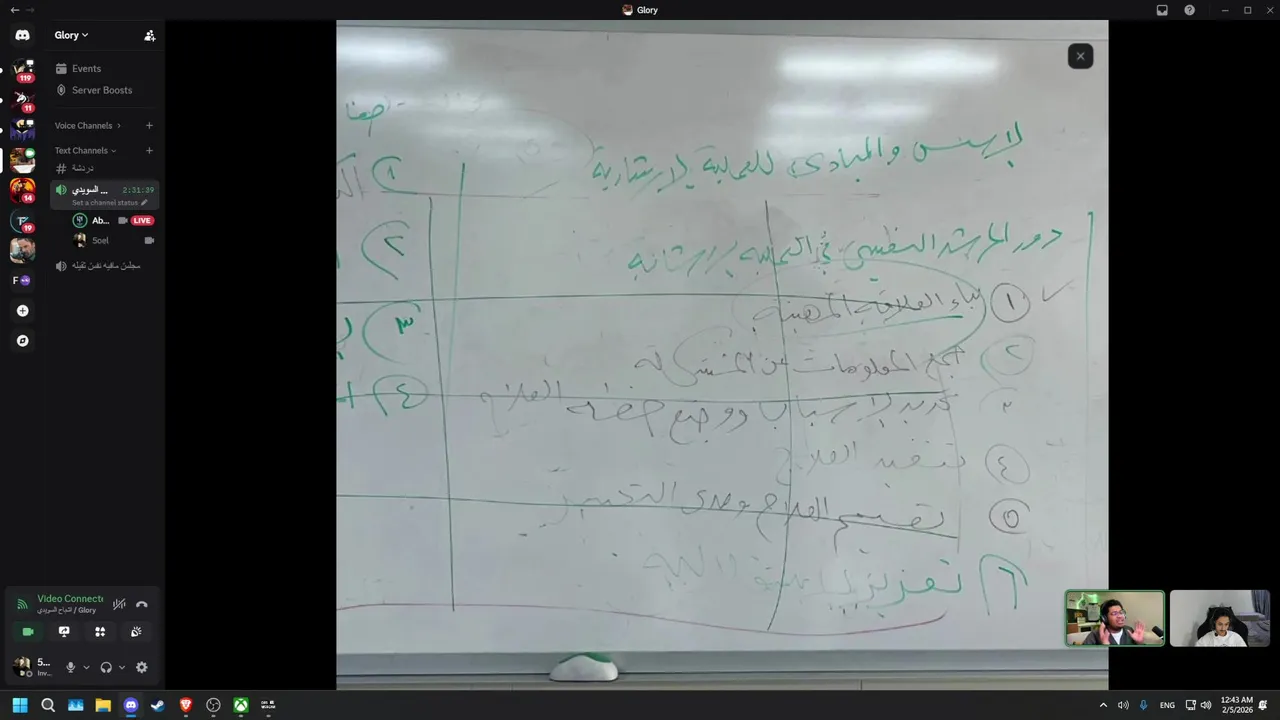 Glory
Glory
Events
Server Boosts
Voice Channels
Text Channels
دردشة
السويدي ...
2:31:39
Set a channel status
Ab...
LIVE
5oel
مجلس مافيه نفس ثقيله
119
11
14
19
F
صفا
الاسس والمبادئ للعملية الارشادية
دور المرشد النفسي في العملية الارشادية
١ بناء العلاقة المهنية
٢ جمع المعلومات عن المشكلة
٣ تحديد الاسباب ووضع خطة العلاج
٤ تنفيذ العلاج
٥ تقييم العلاج ومدى التحسن
٦ تعزيز
١
٢
٣
٤
Video Connecte
السويدي / Glory
5...
Inv...
ENG
12:43 AM
2/5/2026